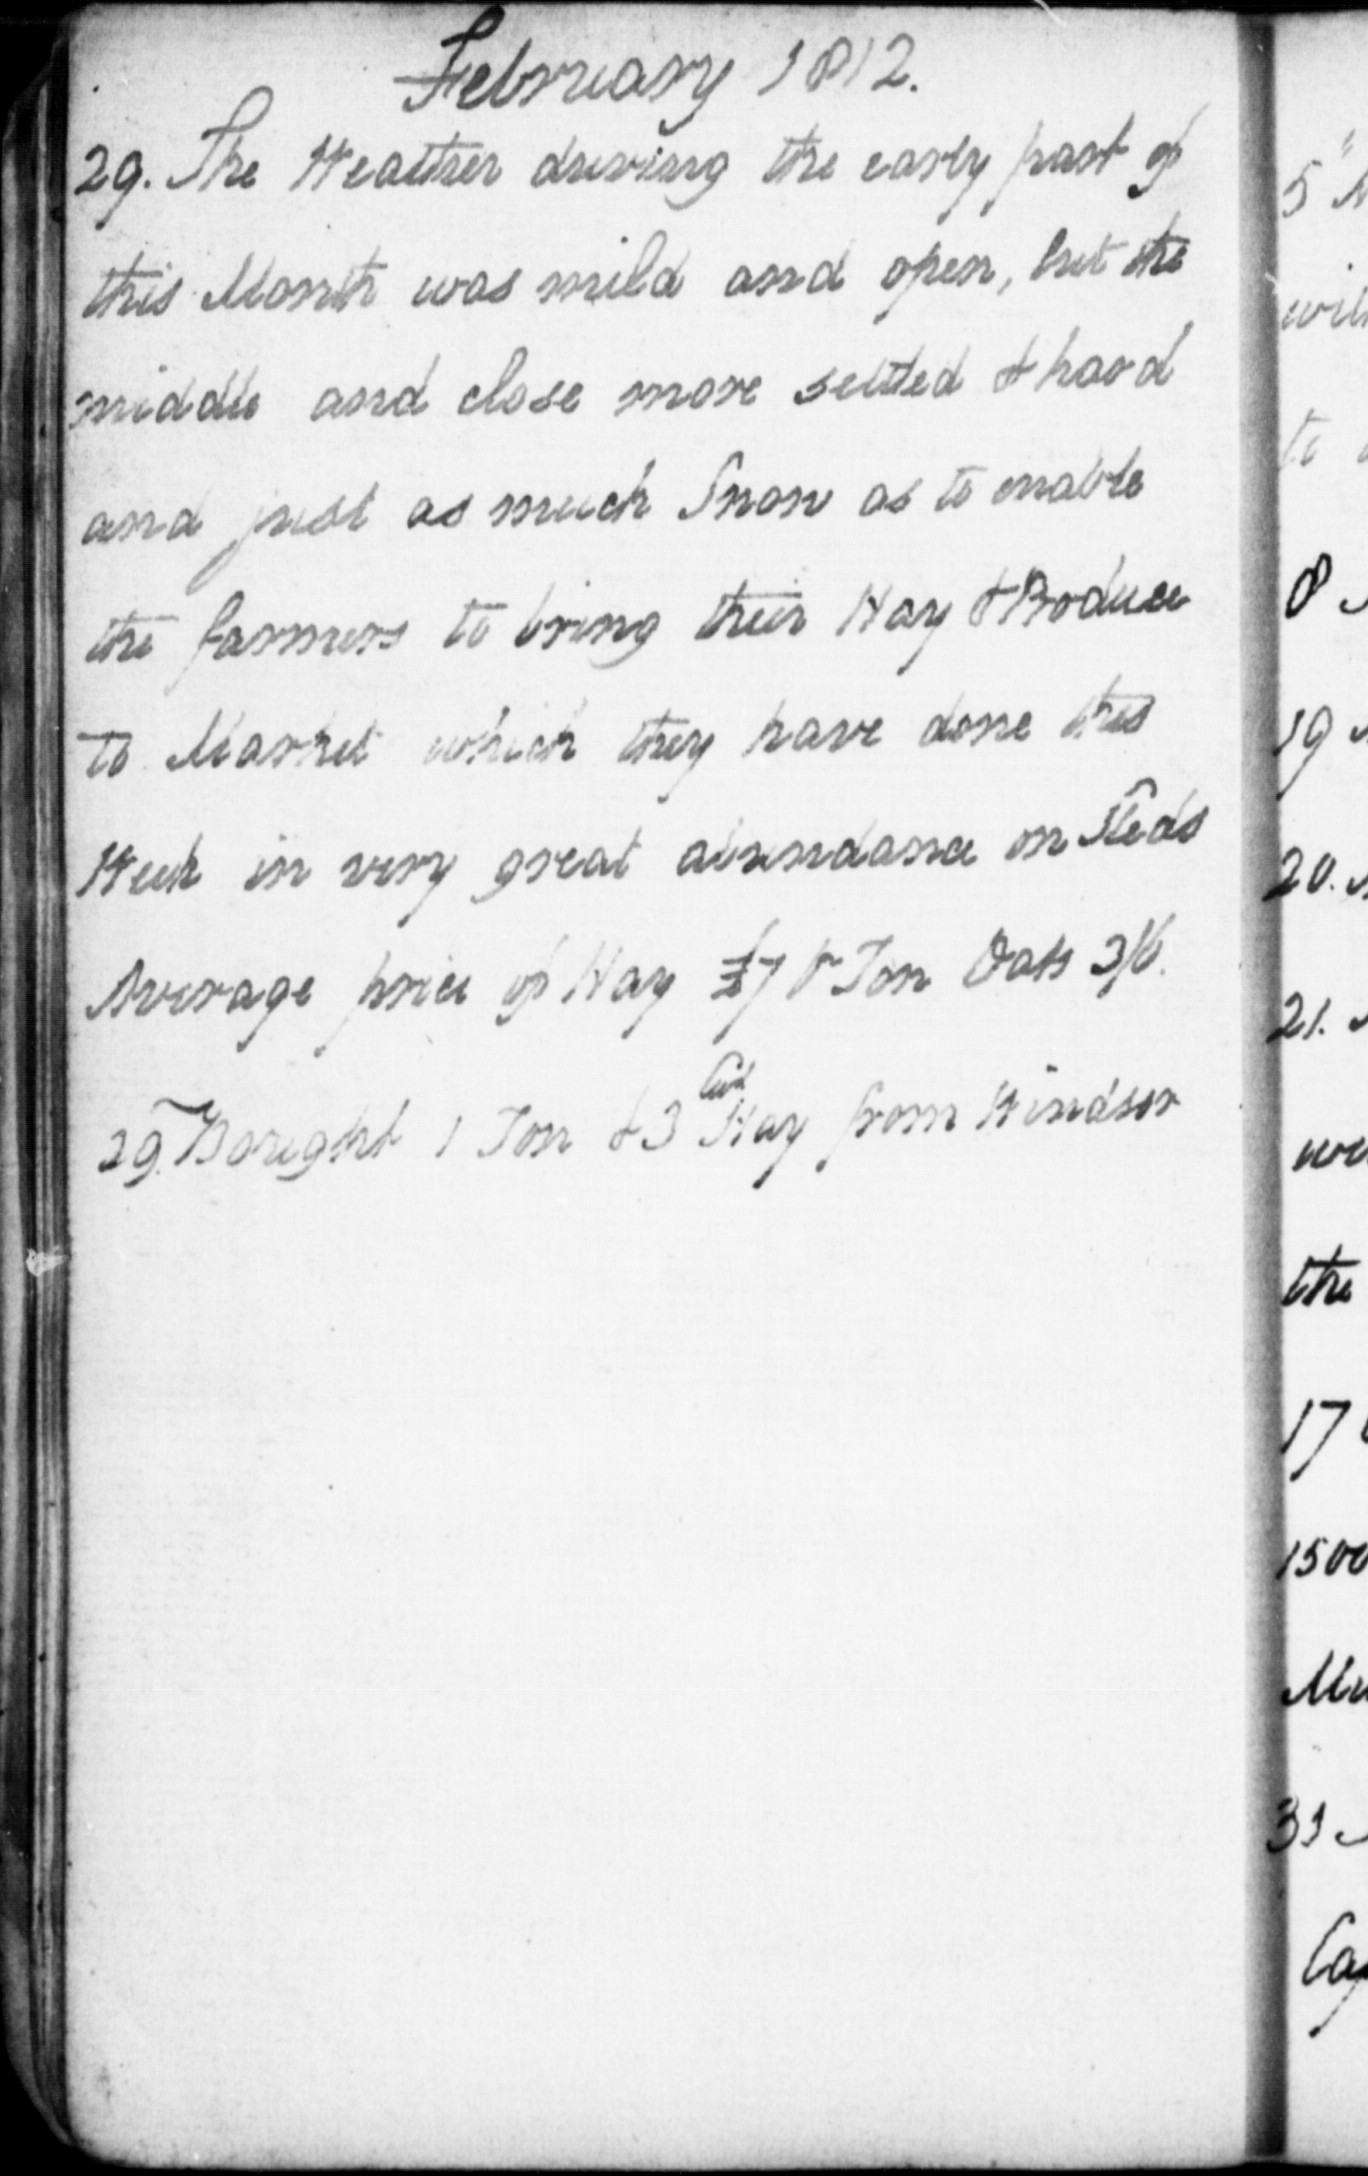 February 1812.
29. The Weather during the early part of
this Month was mild and open, but the
middle and close more settled & hard
and just as much Snow as to enable
the farmers to bring their Hay & Produce
to Market which they have done this
Week in very great abundance on Sleds
Average price of Hay £7 Ton Oats 3/6.
29. Bought 1 Ton & 3 Cwt Hay from Windsor
5
8
19
20.
21.
the
17
1500
31